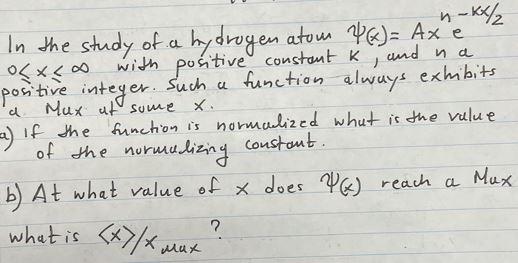 In the study of a hydrogen atom Ψ(x) = Ax^n e^-kx/2
0 ≤ x ≤ ∞ with positive constant k, and n a
positive integer. Such a function always exhibits
a Max at some x.
a) If the function is normalized what is the value
of the normalizing constant.
b) At what value of x does Ψ(x) reach a Max
what is <x>/x_max ?